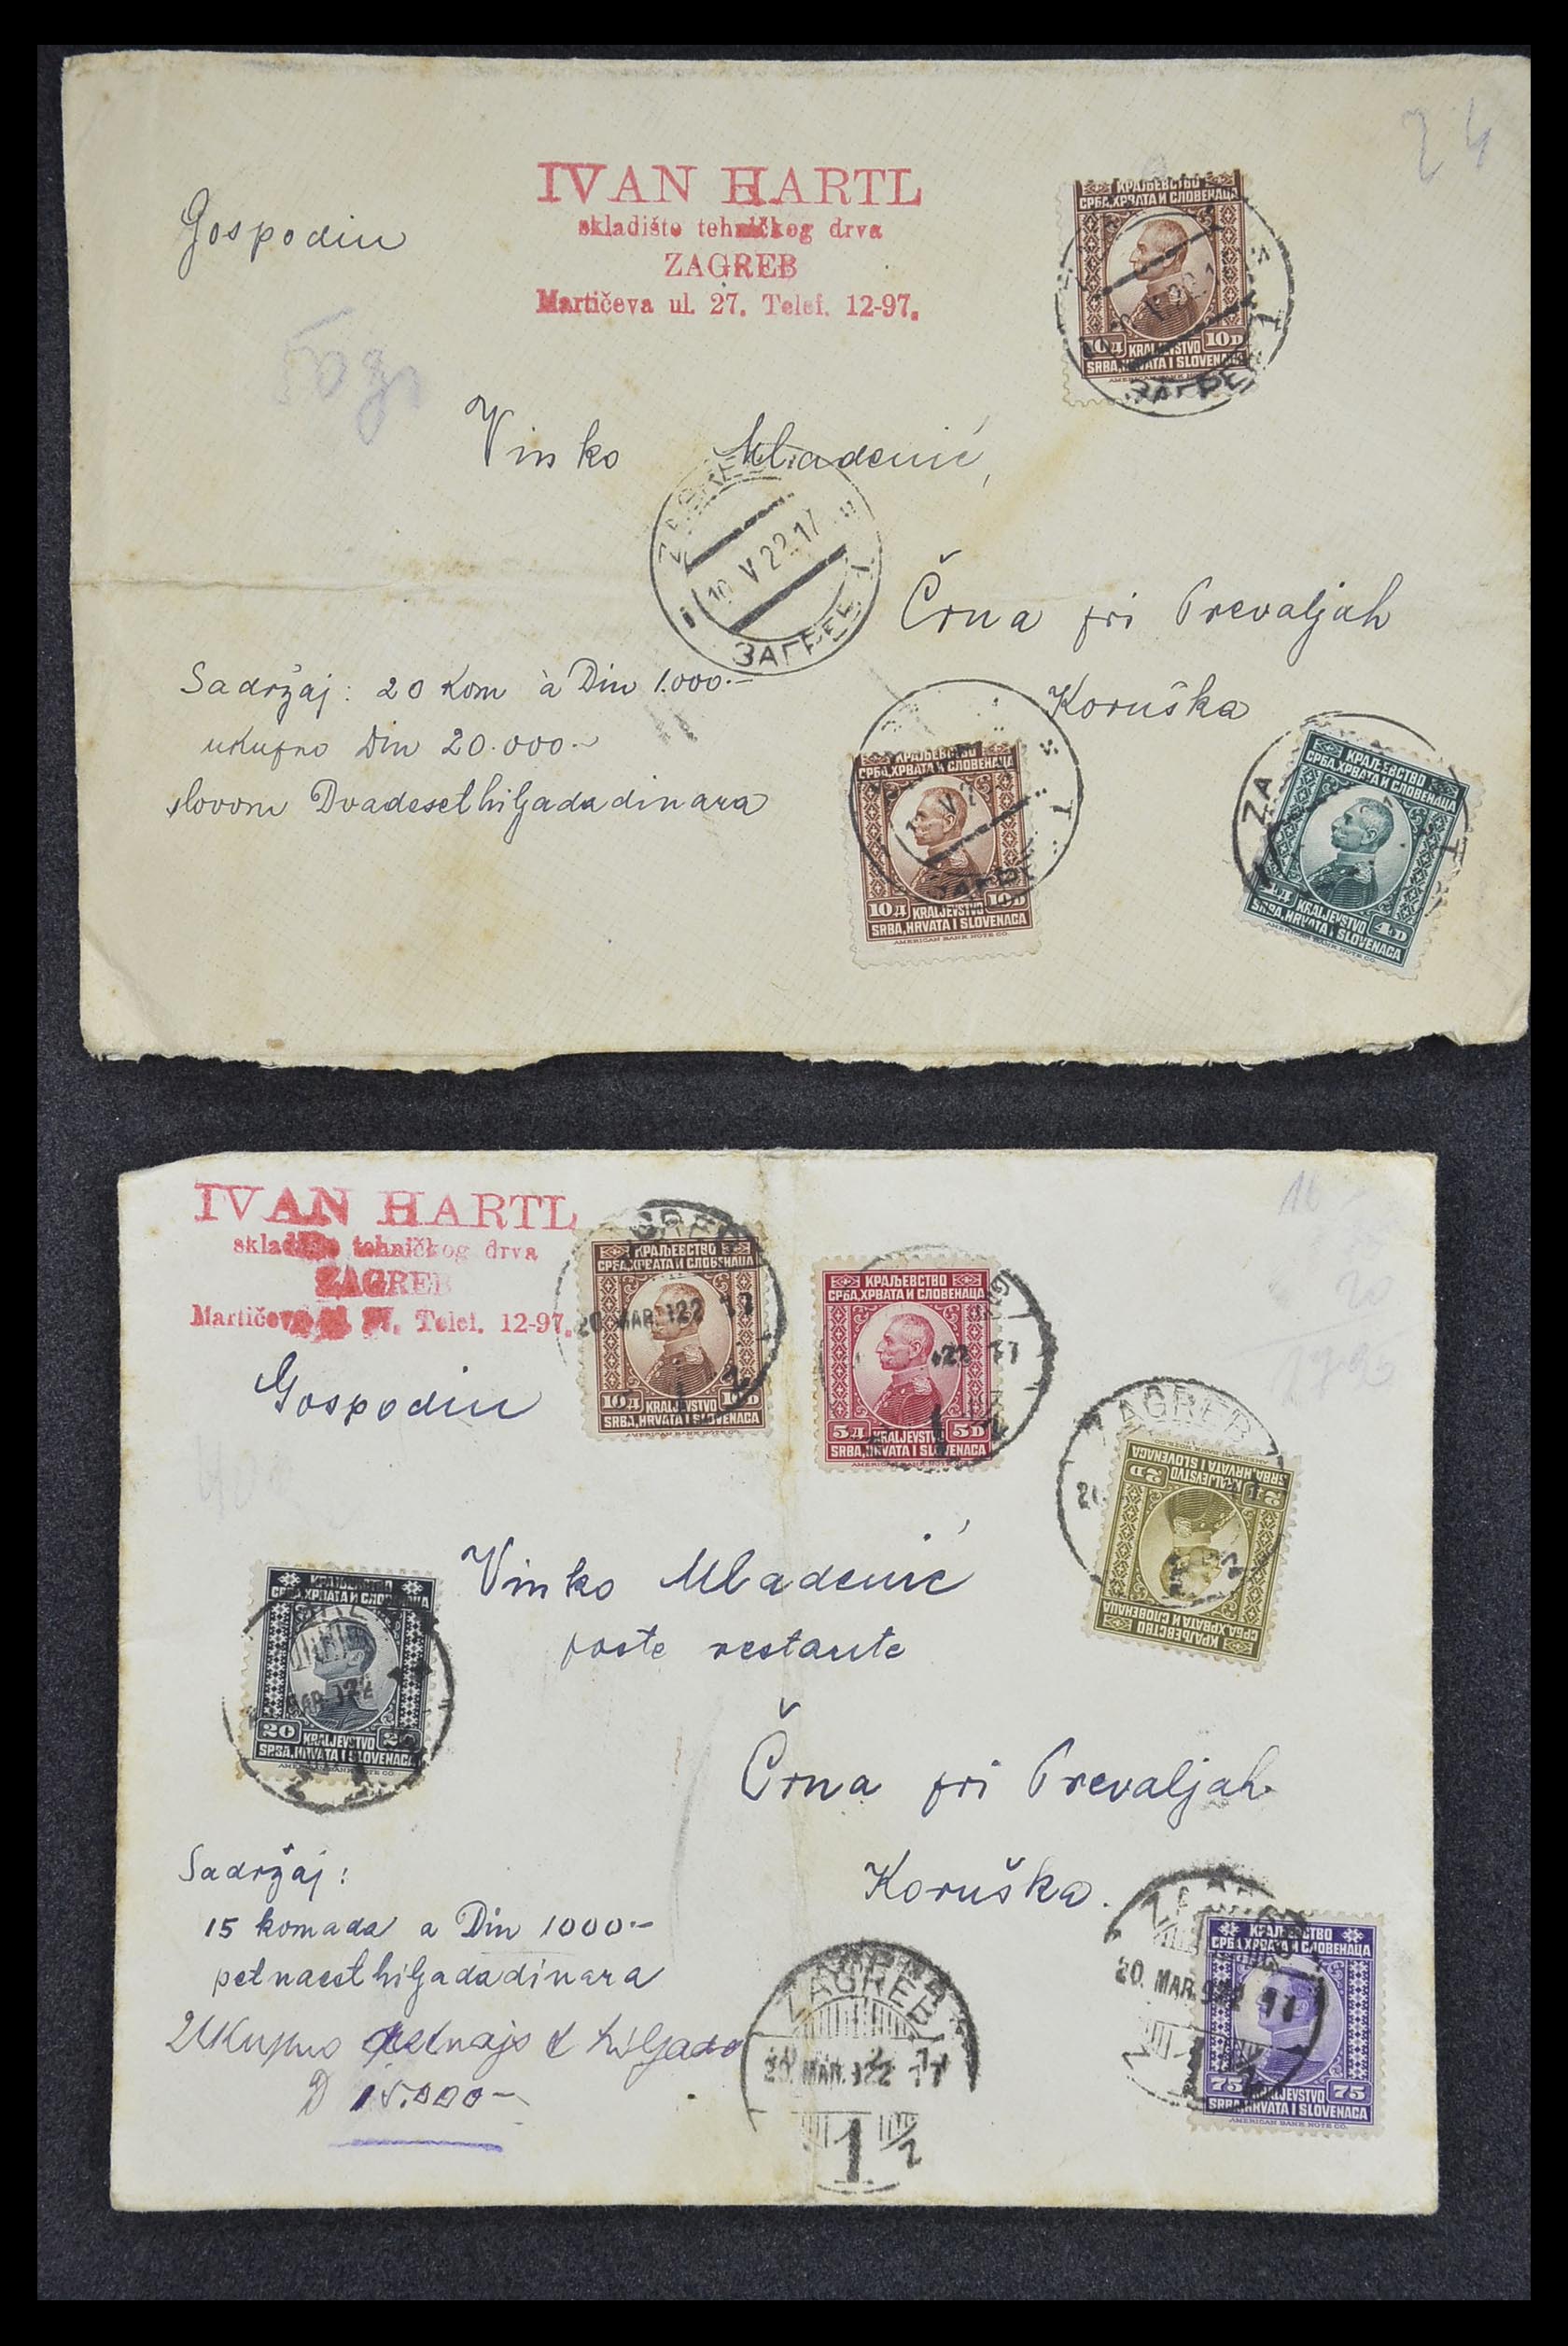 24
IVAN HARTL
skladište tehničkog drva
ZAGREB
Martićeva ul. 27. Telef. 12-97.
Gospodin
КРАЉЕВСТВО
СРБА,ХРВАТА И СЛОВЕНАЦА
10Д KRALJEVSTVO 10D
SRBA,HRVATA I SLOVENACA
AMERICAN BANK NOTE CO.
ЗАГРЕБ
Vinko Mladenić,
ZAGREB
10 V 22.17
ЗАГРЕБ
Črna pri Prevaljah
Koruška
Sadržaj: 20 kom à Din 1.000.-
ukupno Din 20.000.-
slovom Dvadesethiljadadinara
КРАЉЕВСТВО
СРБА,ХРВАТА И СЛОВЕНАЦА
10Д KRALJEVSTVO 10D
SRBA,HRVATA I SLOVENACA
AMERICAN BANK NOTE CO.
ZA
КРАЉЕВСТВО
СРБА,ХРВАТА И СЛОВЕНАЦА
4Д KRALJEVSTVO 4D
SRBA,HRVATA I SLOVENACA
AMERICAN BANK NOTE CO.
IVAN HARTL
skladište tehničkog drva
ZAGREB
Martićeva ul. 27. Telef. 12-97.
Gospodin
КРАЉЕВСТВО
СРБА,ХРВАТА И СЛОВЕНАЦА
20 MAR.922 17
10Д KRALJEVSTVO 10D
SRBA,HRVATA I SLOVENACA
КРАЉЕВСТВО
СРБА,ХРВАТА И СЛОВЕНАЦА
922 17
5Д KRALJEVSTVO 5D
SRBA,HRVATA I SLOVENACA
AMERICAN BANK NOTE CO.
ZAGREB
КРАЉЕВСТВО
СРБА,ХРВАТА И СЛОВЕНАЦА
2Д KRALJEVSTVO 2D
SRBA,HRVATA I SLOVENACA
Vinko Mladenić
poste restante
Črna pri Prevaljah
Koruška.
КРАЉЕВСТВО
СРБА,ХРВАТА И СЛОВЕНАЦА
MAR.922
20 KRALJEVSTVO 20
SRBA,HRVATA I SLOVENACA
AMERICAN BANK NOTE CO.
Sadržaj:
15 komada a Din 1000.-
petnaesthiljadadinara
Ukupno petnajst hiljada
D 15.000-
ZAGREB
20. MAR.922 17
1 1/2
ZAGREB
20. MAR.922 17
КРАЉЕВСТВО
СРБА,ХРВАТА И СЛОВЕНАЦА
75 KRALJEVSTVO 75
SRBA,HRVATA I SLOVENACA
AMERICAN BANK NOTE CO.